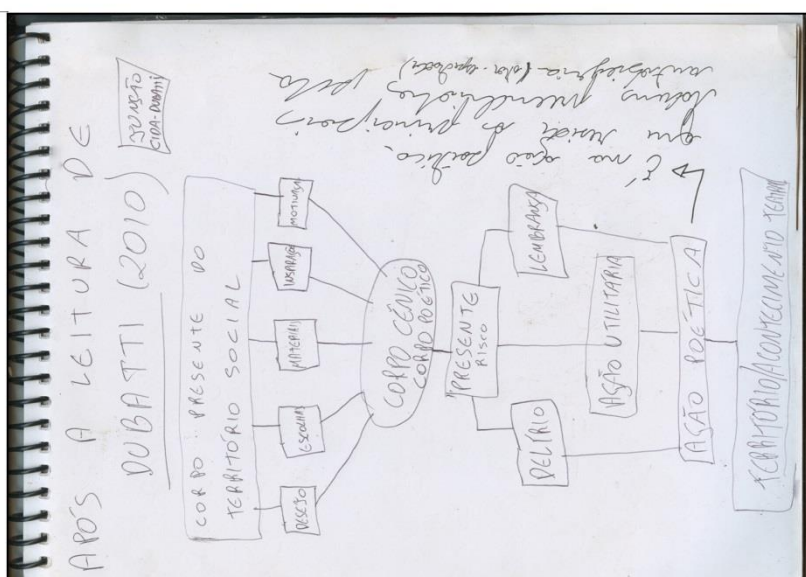 APÓS A LEITURA DE
DUBATTI (2010)
JUNÇÃO
CIDA-DUBATTI
CORPO PRESENTE DO
TERRITÓRIO SOCIAL
DESEJO
ESCOLHAS
MATERIAL
INSPIRAÇÃO
MOTIVAÇÃO
CORPO CÊNICO
CORPO POÉTICO
PRESENTE
RISCO
DELÍRIO
LEMBRANÇA
AÇÃO UTILITARIA
AÇÃO POÉTICA
TERRITÓRIO/ACONTECIMENTO TEATRAL
É na ação poética,
que reside os principais
preenchidos pela